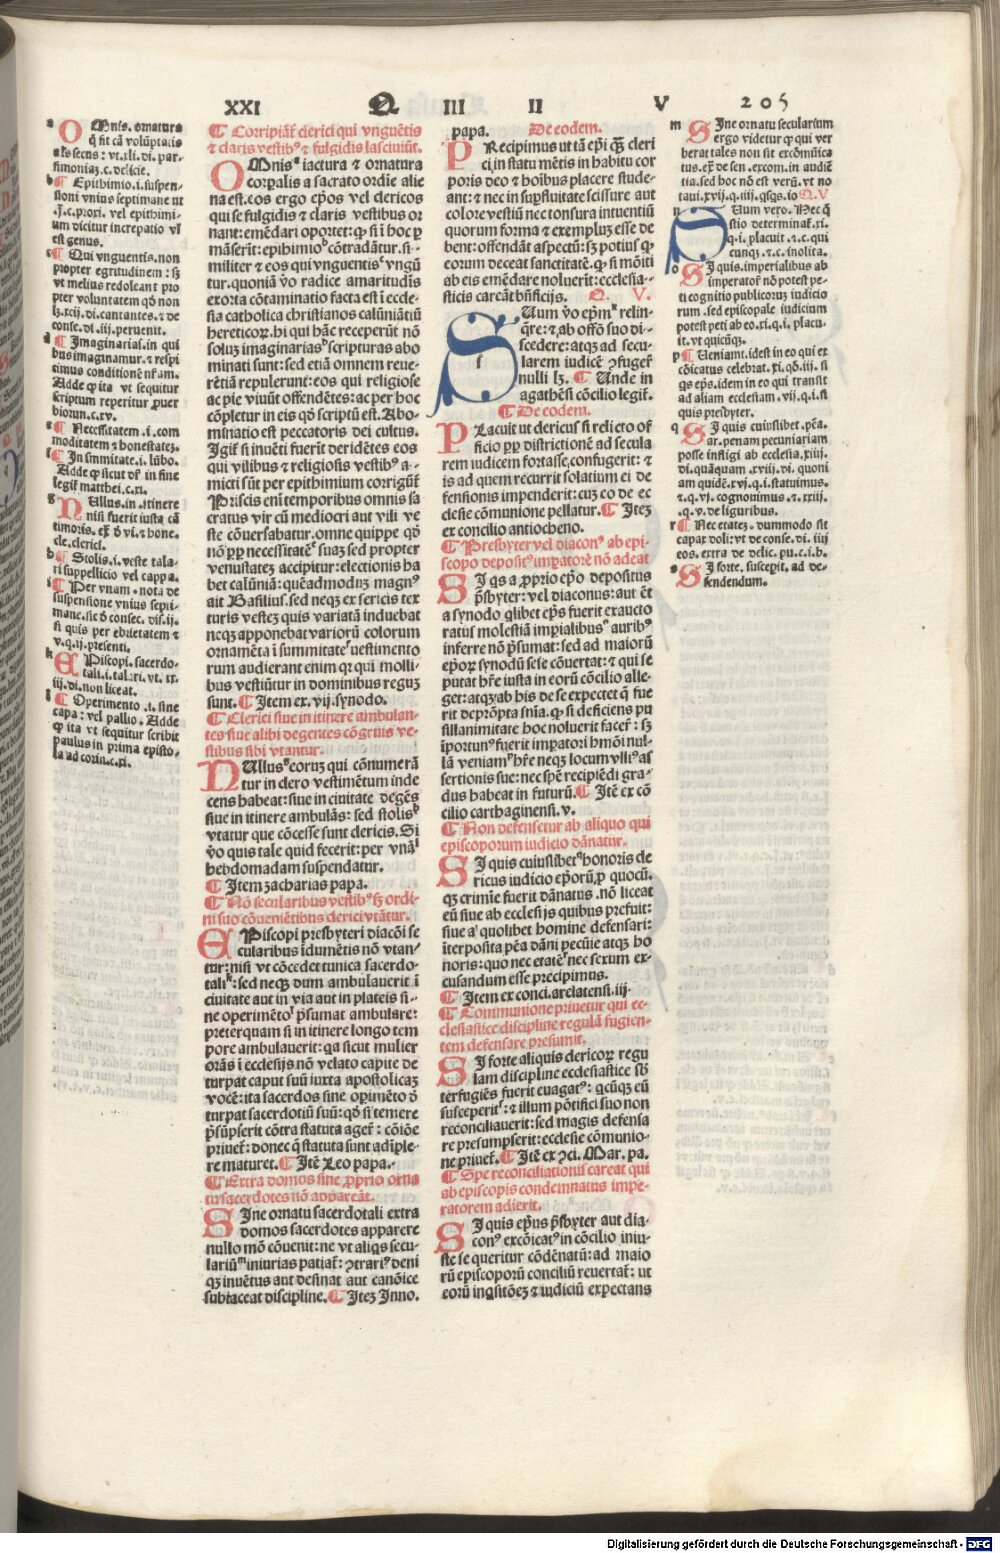 XXI Q III II V 205
a OMnis. ornatura
q̄ fit cā volūptatis
als secus: vt.xli. di. par-
simoniaʒ.c.delicie.
b ¶ Epithimio.i.suspen-
sioni vnius septimane ut
.J.c.proxi. vel epithimi-
um dicitur increpatio vl
est genus.
c ¶ Qui vnguentis.non
propter egritudinem: sʒ
vt melius redoleant pro
pter voluntatem qđ non
lʒ.xcij.di.cantantes.⁊ de
conse.di.iij.peruenit.
d ¶ Imaginarias.in qui
bus imaginamur.⁊ respi
cimus conditionē nr̄am.
Adde ꝙ ita vt sequitur
scriptum reperitur ꝓuer
biorum.c.xv.
e ¶ Necessitatem.i.com
moditatem ⁊ honestateʒ.
f ¶ In sūmitate.i.lūbo.
Adde ꝙ sicut dr̄ in fine
legit̄ matthei.c.xi.
g NUllus.in itinere
nisi fuerit iusta cā
timoris. ex̄ đ vi.⁊ hone.
cle.clerici.
h ¶ Stolis.i.veste tala-
ri suppellicio vel cappa.
i ¶ Per vnam.nota de
suspensione vnius septi-
mane.sic đ consec. dis.ij.
si quis per ebrietatem ⁊
v.q.ij.presenti.
k EPiscopi.sacerdo-
tali.i.talari. vt. xx
iij.di.non liceat.
l ¶ Operimento .i. sine
capa: vel pallio. Adde
ꝙ ita vt sequitur scribit
paulus in prima episto-
la ad corin.c.xi.
¶ Corripiāt̄ clerici qui vnguētis
⁊ claris vestibꝰ ⁊ fulgidis lasciuiūt.
OMnisᵃ iactura ⁊ ornatura
corꝑalis a sacrato ordīe alie
na est.eos ergo ep̄os vel clericos
qui se fulgidis ⁊ claris vestibus or
nant:emēdari oportet:ꝙ si ī hoc ꝑ
māserīt:epithimioᵇ cōtradātur.si-
militer ⁊ eos qui vnguentisᶜ vngū
tur.quoniā v̄o radice amaritudīs
exorta cōtaminatio facta est ī eccle-
sia catholica christianos calūniātiū
hereticoꝝ.hi qui hāc receperūt nō
soluʒ imaginariasᵈ scripturas abo
minati sunt:sed etiā omnem reue-
rētiā repulerunt:eos qui religiose
ac pie viuūt offendētes:ac per hoc
cōpletur in eis qđ scriptū est.Abo-
minatio est peccatoris dei cultus.
Igit̄ si inuēti fuerīt deridētes eos
qui vilibus ⁊ religiosis vestibꝰ a-
micti sūt per epithimium corrigūt̄
Priscis eni temporibus omnis sa
cratus vir cū mediocri aut vili ve
ste cōuersabatur.omne quippe qđ
nō ꝓꝑ necessitatēᵉ suaʒ sed propter
venustateʒ accipitur:electionis ha
bet calūniā:quēadmoduʒ magnꝰ
ait Basilius.sed neqʒ ex sericis tex
turis vesteʒ quis variatā induebat
neqʒ apponebat variorū colorum
ornamēta ī summitateᶠ uestimento
rum audierant enim qꝛ qui molli-
bus vestiūtur in dominibus reguʒ
sunt.¶ Item ex.vij.synodo.
¶ Clerici siue in itinere ambulan-
tes siue alibi degentes cōgruis ve-
stibus sibi vtantur.
NUllusᵍ eoruʒ qui cōnumerā
tur in clero vestimētum inde
cens habeat:siue in ciuitate degēs
siue in itinere ambulās: sed stolisʰ
vtatur que cōcesse sunt clericis.Si
v̄o quis tale quid fecerit:per vnāⁱ
hebdomadam suspendatur.
¶ Item zacharias papa.
¶ Nō secularibus vestibꝰ sʒ ordi-
ni suo cōuenētibus clerici vtātur.
EPiscopi presbyteri diacōi se
cularibus īdumētis nō vtan-
tur:nisi vt cōcedet̄ tunica sacerdo-
taliᵏ:sed neqʒ dum ambulauerit ī
ciuitate aut in via aut in plateis si-
ne operimētoˡ p̄sumat ambulare:
preterquam si in itinere longo tem
pore ambulauerit:qa sicut mulier
orās ī ecclesijs nō velato capite de
turpat caput suū iuxta apostolicaʒ
vocē:ita sacerdos sine oꝑimēto đ
turpat sacerdotiū suū:qđ si temere
p̄sūpserit cōtra statuta aget̄: cōiōe
priuet̄:donec q̄ statuta sunt adīple-
re maturet.¶ Itē Leo papa.
¶ Extra domos sine ꝓprio orna
tu sacerdotes nō appareāt.
SIne ornatu sacerdotali extra
domos sacerdotes apparere
nullo mō cōuenit:ne vt aliqs secu-
lariūᵐ iniurias patiat̄: ↄtrariꝰ deni
qʒ inuētus aut desinat aut canōice
subiaceat discipline.¶ Iteʒ Inno.
papa. De eodem.
PRecipimus ut tā ep̄i qᷓʒ cleri
ci in statu mētis in habitu cor
poris deo ⁊ hoībus placere stude-
ant:⁊ nec in suꝑfluitate scissure aut
colore vestiū nec tonsura intuentiū
quorum forma ⁊ exempluʒ esse de
bent:offendāt aspectū:sʒ potius ꝙ
eorum deceat sanctitatē.ꝙ si mōiti
ab eis emēdare noluerīt:ecclesia-
sticis carēat b̄nficijs. Q. V.
SUum v̄o ep̄mⁿ relin-
q̄re:⁊ ab offō suo di-
scedere:atqʒ ad secu-
larem iudicē ↄfuger̄
nulli lʒ. ¶ Unde in
agathēsi cōcilio legit̄.
¶ De eodem.
PLacuit ut clericus si relicto of
ficio ꝓꝑ districtionē ad secula
rem iudicem fortasse,confugerit: ⁊
is ad quem recurrit solatium ei de
fensionis impenderit:cuʒ eo de ec
clesie cōmunione pellatur.¶ Iteʒ
ex concilio antiocheno.
¶ Presbyter vel diaconꝰ ab epi-
scopo depositꝰ impatorē nō adeat
SI qs a ꝓprio ep̄o depositus
p̄sbyter:vel diaconus:aut ēt
a synodo qlibet ep̄s fuerit exaucto
ratus molestiā imꝑialibusᵒ auribꝰ
inferre nō p̄sumat:sed ad maiorū
ep̄oꝝ synodū sese cōuertat:⁊ qui se
putat hr̄e iusta in eorū cōcilio alle-
get:atqʒ ab his de se expectet q̄ fue
rit deprōpta sn̄ia.ꝙ si deficiens pu
sillanimitate hoc noluerit facer̄: sʒ
īportunꝰ fuerit imꝑatori hmōi nul-
lā veniamᵖ hr̄e neqʒ locum vlliꝰ as
sertionis sue:nec spē recipiēdi gra-
dus habeat in futurū.¶ Itē ex cō
cilio carthaginensi.v.
¶ Non defensetur ab aliquo qui
episcoporum iudicio dānatur.
SI quis cuiuslibet honoris cle
ricus iudicio ep̄orū,ꝓ quocū.
qʒ crimīe fuerit dānatus .nō liceat
eū siue ab ecclesijs quibus prefuit:
siue a quolibet homine defensari:
īterposita pēa dāni pecūie atqʒ ho
noris:quo nec etatēʳ nec sexum ex-
cusandum esse precipimus.
¶ Item ex conci.arelatensi.iij.
¶ Communione priuetur qui ec-
clesiastice discipline regulā fugien-
tem defensare presumit.
SI forte aliquis clericoꝝ regu
lam discipline ecclesiastice sb̄
terfugiēs fuerit euagatꝰ: qcūqʒ eū
susceperitˢ:⁊ illum pōtifici suo non
reconciliauerit:sed magis defensa
re presumpserit:ecclesie cōmunio-
ne priuet̄.¶ Itē ex ↄci. Mar. pa.
¶ Spe reconciliationis careat qui
ab episcopis condemnatus impe-
ratorem adierit.
SI quis ep̄us p̄sbyter aut dia-
conꝰ excōicatꝰ in cōcilio iniu-
ste se queritur cōdēnatū:ad maio
rū episcoporū conciliū reuertat̄: ut
eorū inqsitōeʒ ⁊ iudiciū expectans
m SIne ornatu secularium
ergo videtur ꝙ qui ver
berat tales non sit excōmūica
tus.ex̄ de sen.excom.in audiē
tia.sed hoc nō est verū.vt no
taui.xvij.q.iiij.qsqs.io Q.V
n SUum vero. Nec q̄
stio determinat̄.xi.
q.i. placuit .⁊.c. qui
cunqʒ .⁊.c. inolita.
o SI quis.imperialibus ab
imperatoř nō potest pe-
ti cognitio publicoruʒ iudicio
rum .sed episcopale iudicium
potest peti ab eo.xi.q.i. placu-
it. vt quicūqʒ.
p ¶ Ueniam.idest in eo qui ex
cōicatus celebrat. xi.qō.iij. si
qs ep̄s.idem in eo qui transit
ad aliam ecclesiam.vij.q.i.si
quis presbyter.
q SI quis cuiuslibet.pēa.
ar.penam pecuniariam
posse infligi ab ecclesia.xiij.
di.quāquam.xviij.di. quoni
am quidē.xvi.q.i.statuimus.
⁊.q.vj. cognouimus.⁊.xxiij.
q.v.de liguribus.
r ¶ Nec etateʒ.dummodo sit
capax doli:vt de conse.di. iiij
eos.extra de delic.pu.c.i.h.
s SI forte.suscepit.ad de-
fendendum.
Digitalisierung gefördert durch die Deutsche Forschungsgemeinschaft - DFG